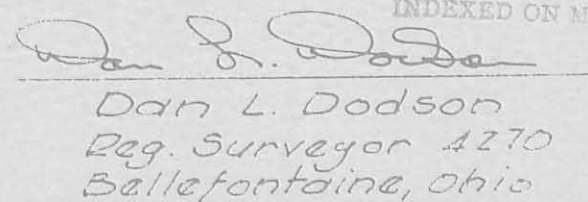 INDEXED ON M
Dan L. Dodson
Dan L. Dodson
Reg. Surveyor 4270
Bellefontaine, Ohio